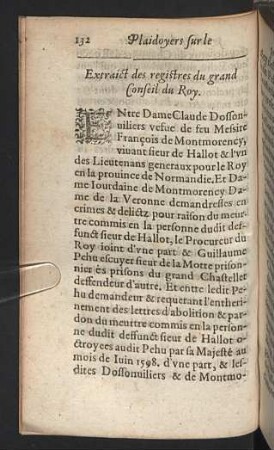 132 Plaidoyers sur le
Extraict des registres du grand
Conseil du Roy.
ENtre Dame Claude Dosson-
uiliers vefue de feu Messire
François de Montmorency,
viuant sieur de Hallot & l'vn
des Lieutenans generaux pour le Roy
en la prouince de Normandie, Et Da-
me Iourdaine de Montmorency Da-
me de la Veronne demandresses en
crimes & delictz pour raison du meur-
tre commis en la personne dudit def-
funct sieur de Hallot, le Procureur du
Roy ioint d'vne part & Guillaume
Pehu escuyer sieur de la Motte prison-
nier és prisons du grand Chastellet
deffendeur d'autre. Et entre ledit Pe-
hu demandeur & requerant l'entheri-
nement des lettres d'abolition & par-
don du meurtre commis en la person-
ne dudit deffunct sieur de Hallot o-
ctroyees audit Pehu par sa Majesté au
mois de Iuin 1598. d'vne part, & les-
dites Dossonuiliers & de Montmo-